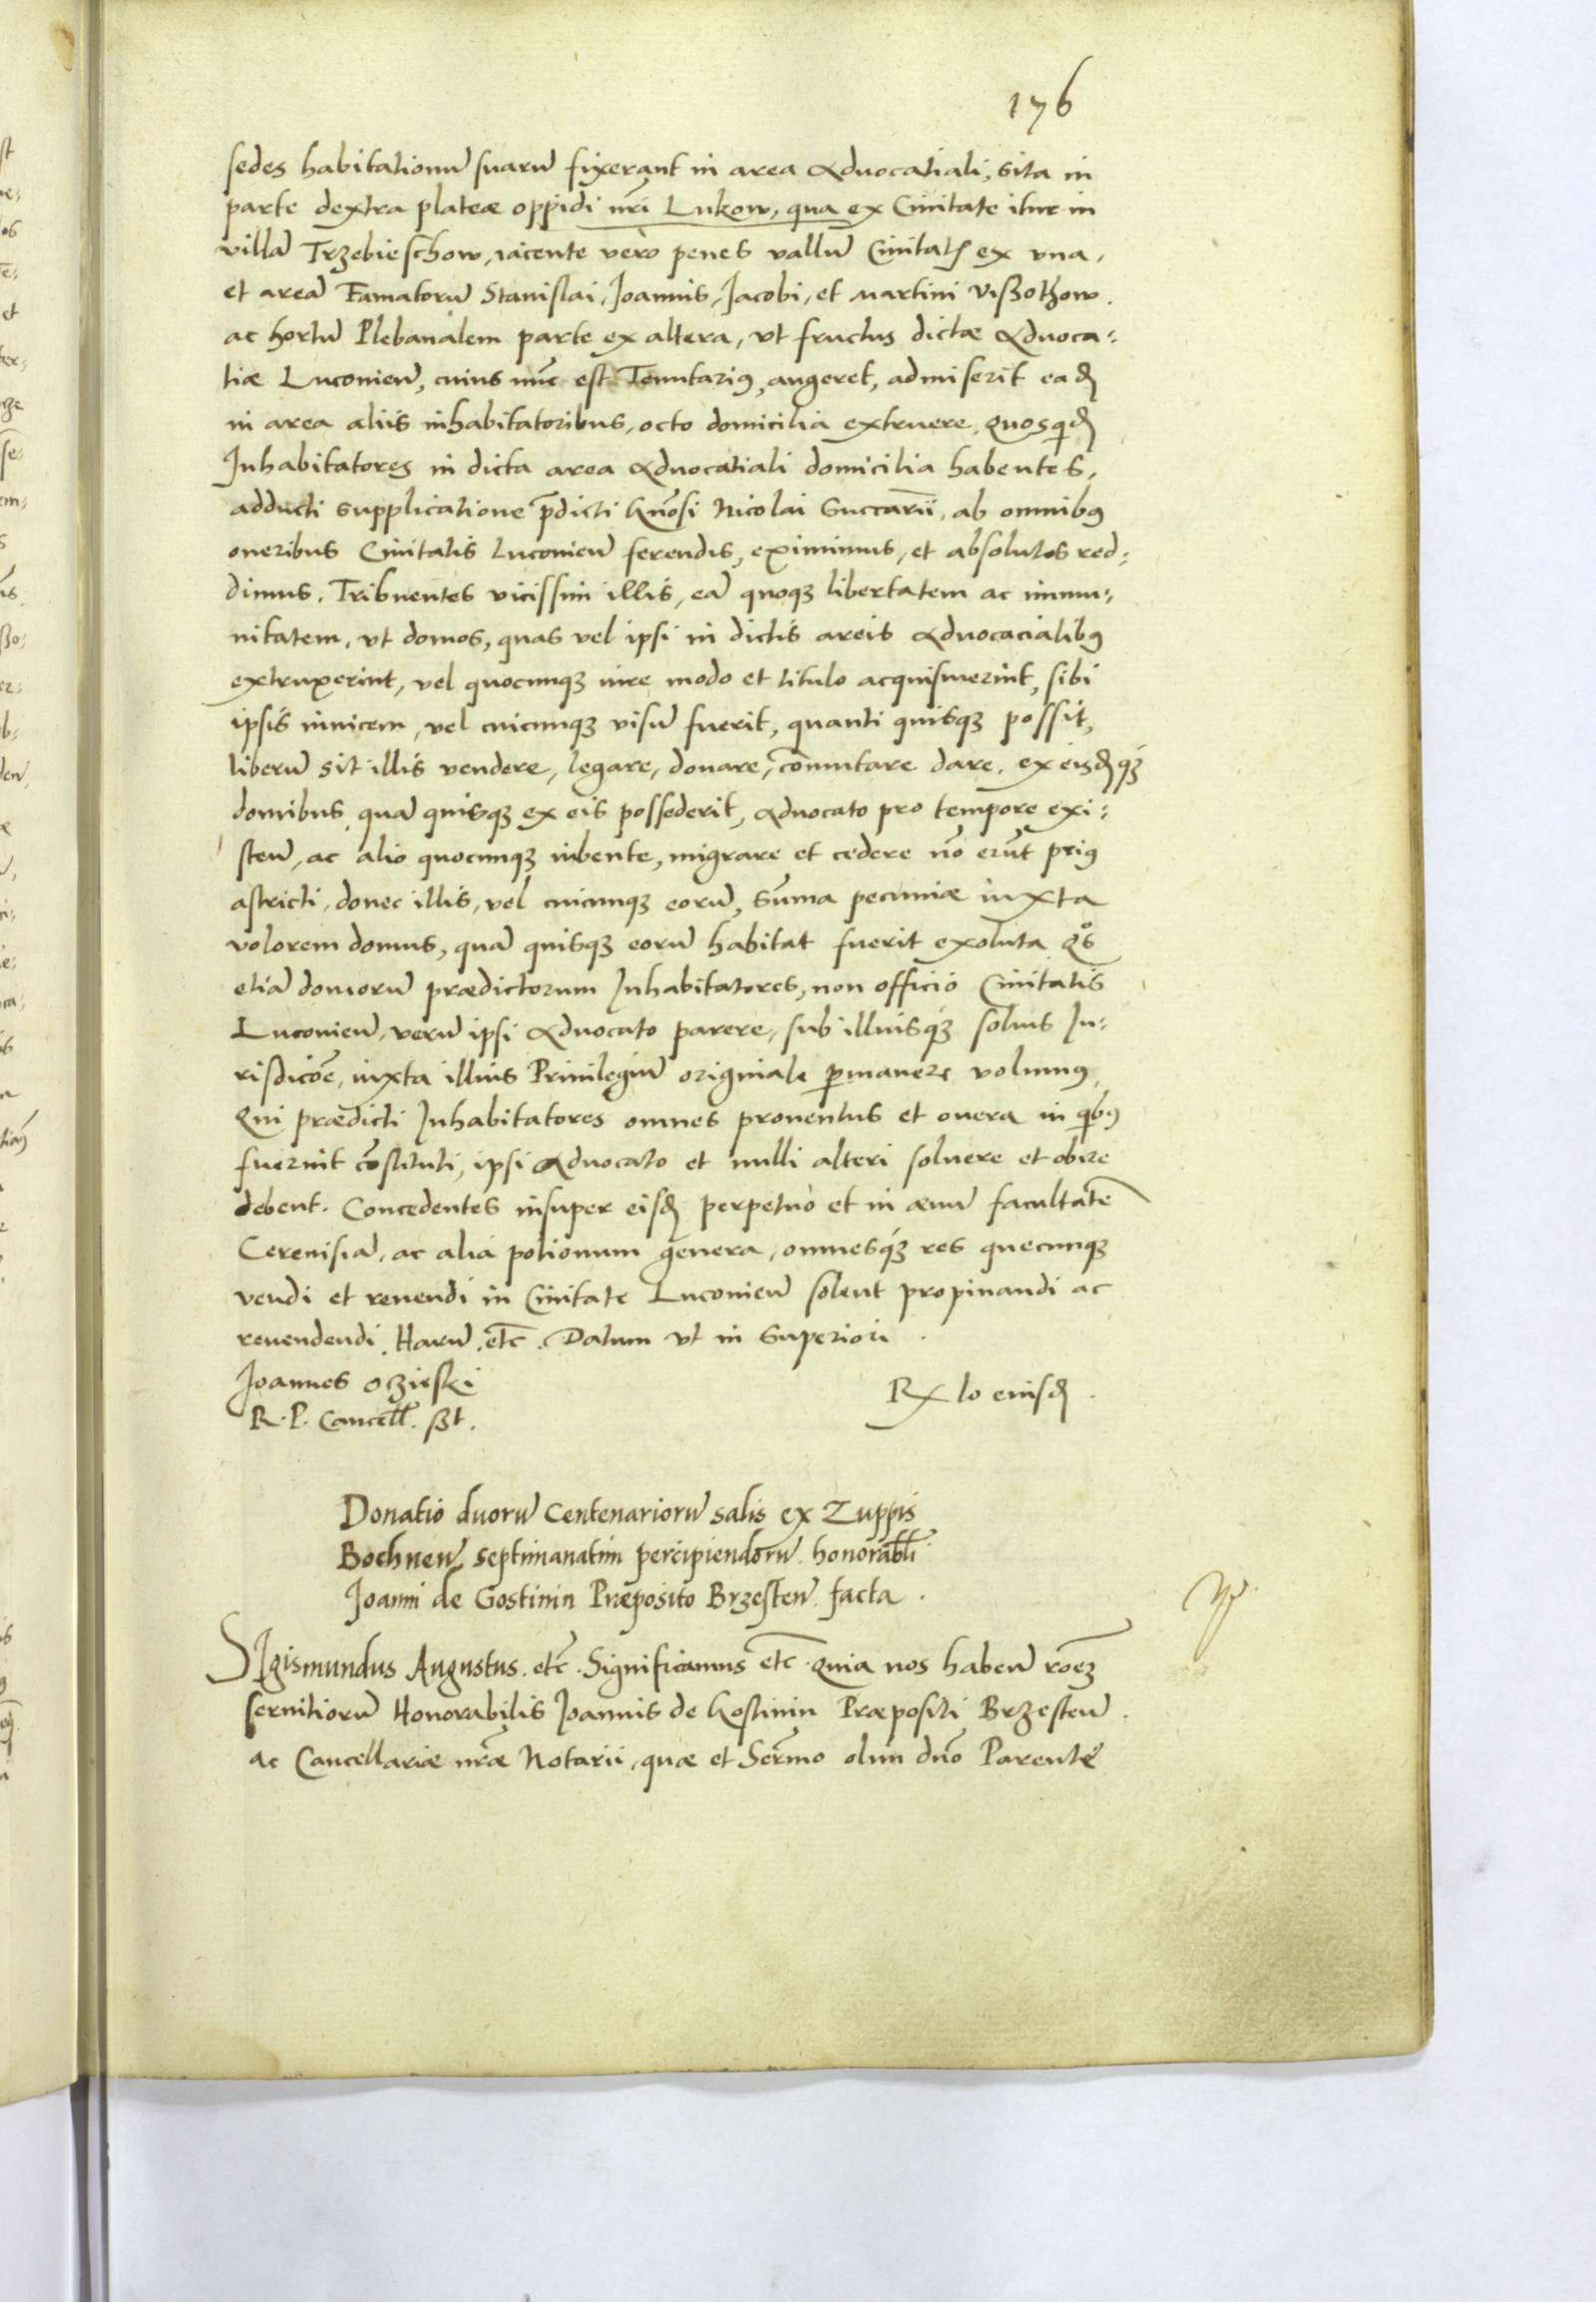 176
sedes habitationu̅ suaru̅ fixerant in area aduocatiali, sita in
parte dextra plateæ oppidi nr̅i Lukow, qua ex Ciuitate itur in
villa̅ Trzebieschow, iacente vero penes vallu̅ Ciuitatis ex vna,
et area̅ Famatoru̅ Stanislai, Joannis, Jacobi, et Martini
ac hortu̅ Plebanalem parte ex altera, vt fructus dictæ aduoca-
tiæ Luconien̅, cuius nu̅c est Tenutarius, augeret, admiserit ead
in area aliis inhabitatoribus, octo domicilia extruere. Quosquid
Inhabitatores in dicta area aduocatiali domicilia habentes,
adducti supplicatione p̅dicti Gn̅osi Nicolai Succarii, ab omnibus
oneribus Ciuitatis Luconien̅ ferendis, eximimus, et absolutos red-
dimus. Tribuentes vicissim illis, ea̅ quoq3 libertatem ac immu-
nitatem, vt domos, quas vel ipsi in dictis areis aduocacialibus
extruxerint, vel quocunq3 iure modo et titulo acquisiuerint, sibi
ipsis inuicem, vel cuicunq3 visu̅ fuerit, quanti quisq3 possit,
liberu̅ sit illis vendere, legare, donare, co̅mutare dare, ex eisdq3
domibus, qua̅ quisq3 ex eis possederit, aduocato pro tempore exi-
sten̅, ac alio quocunq3 iubente, migrare et cedere no̅ eru̅t prius
astricti, donec illis, vel cuicunq3 eoru̅, su̅ma pecuniæ iuxta
volorem domus, qua̅ quisq3 eoru̅ habitat fuerit exoluta Qos
etia̅ domoru̅ prædictorum Inhabitatores, non officio Ciuitatis
Luconien̅, veru̅ ipsi aduocato parere, sub illiusq3 solius Ju-
risdicõe, iuxta illius Priuilegiu̅ originale p̱manere volumus,
Qui prædicti Inhabitatores omnes prouentus et onera in qbus
fuerint co̅stituti, ipsi aduocato et nulli alteri soluere et obire
debent. Concedentes insuper eisd perpetuo et in æuu̅ facultate̅
Cereuisia̅, ac alia potionum genera, omnesq3 res quecunq3
vendi et reuendi in Ciuitate Luconien̅ solent propinandi ac
reuendendi. Haru̅ etc̅. Datum vt in superiori.
Joannes Oczieski
R. P. Cancell̅. sst.
Rx̱ lo eiusd.
Donatio duoru̅ Centenarioru̅ salis ex Zuppis
Bochnen̅ septimanatim percipiendoru̅ honorabl̅i
Joanni de Gostinin Præposito Brzesten̅ facta.
SIgismundus Augustus. etc̅. Significamus etc̅. Quia nos haben̅ ro̅e3
seruitioru̅ Honorabilis Joannis de Gostinin Præpositi Brzesten̅.
ac Cancellariæ nr̅æ Notarii, quæ et Ser̅mo olim dn̅o Parente̅